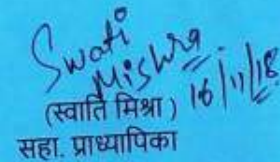 Swati
Mishra
16/11/18
(स्वाति मिश्रा)
सहा. प्राध्यापिका